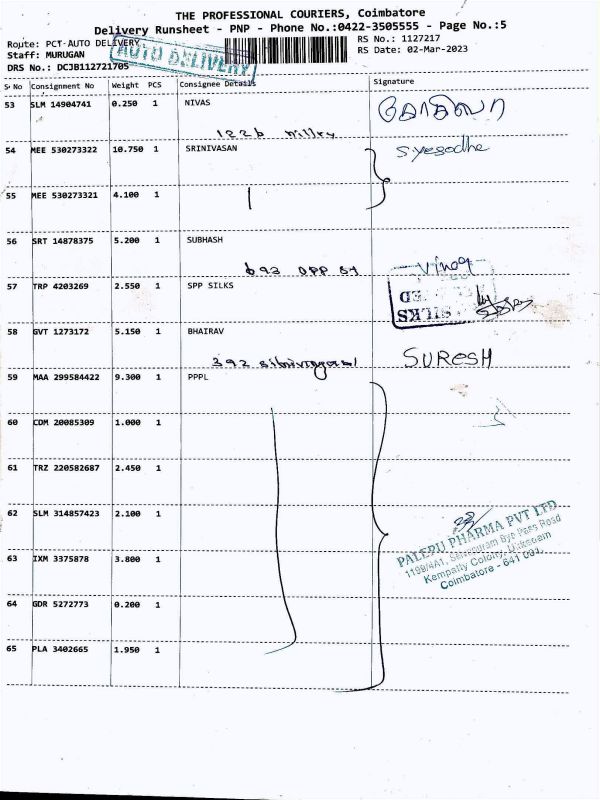 THE PROFESSIONAL COURIERS, Coimbatore
Delivery Runsheet - PNP - Phone No.:0422-3505555 - Page No.:5
Route: PCT-AUTO DELIVERY RS No.: 1127217
Staff: MURUGAN RS Date: 02-Mar-2023
DRS No.: DCJB112721705
AUTO DELIVERY
S·No Consignment No Weight PCS Consignee Details Signature
53 SLM 14904741 0.250 1 NIVAS
122b
54 MEE 530273322 10.750 1 SRINIVASAN
S.yesodha
55 MEE 530273321 4.100 1
56 SRT 14878375 5.200 1 SUBHASH
693 OPP St
57 TRP 4203269 2.550 1 SPP SILKS
SILKS
58 GVT 1273172 5.150 1 BHAIRAV
392
SURESH
59 MAA 299584422 9.300 1 PPPL
60 CDM 20085309 1.000 1
61 TRZ 220582687 2.450 1
62 SLM 314857423 2.100 1
63 IXM 3375878 3.800 1
64 GDR 5272773 0.200 1
65 PLA 3402665 1.950 1
PALEPU PHARMA PVT LTD
1199/4A1, Bye Pass Road
Kempatty Colony, Ukkadam
Coimbatore - 641 001.